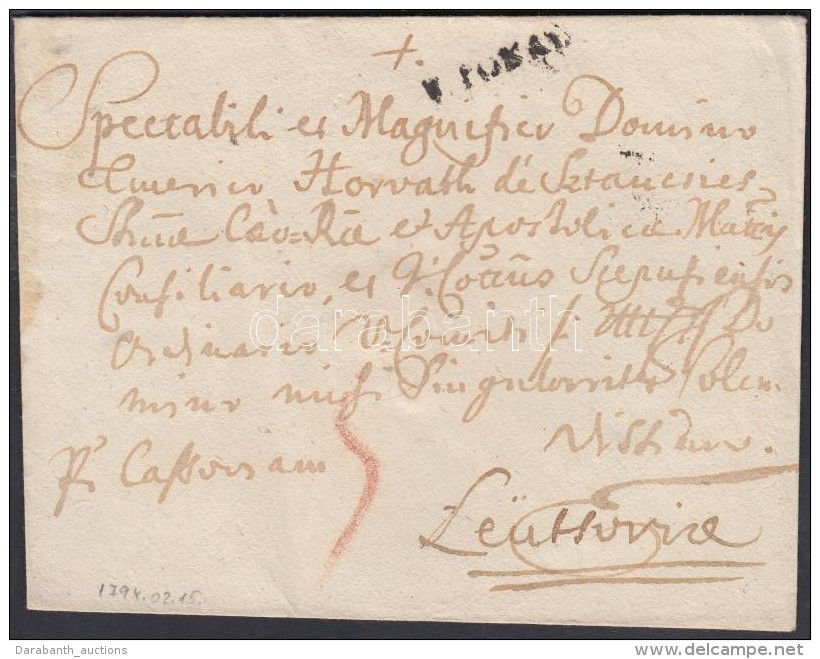 V. TOKAY
Spectabili et Magnifico Domino
Emerico Horvath de Sztancsics
Caeo=Rae et Apostolicae Mattis
Consiliario, et I. Cottus Scepusiensis
Ordinario V. Comiti Do
mino mihi Singulariter Colen
distimo.
pr Cassoviam
Leütsoviae
1794.02.15.
darabanth
Darabanth_auctions
www.delcampe.net